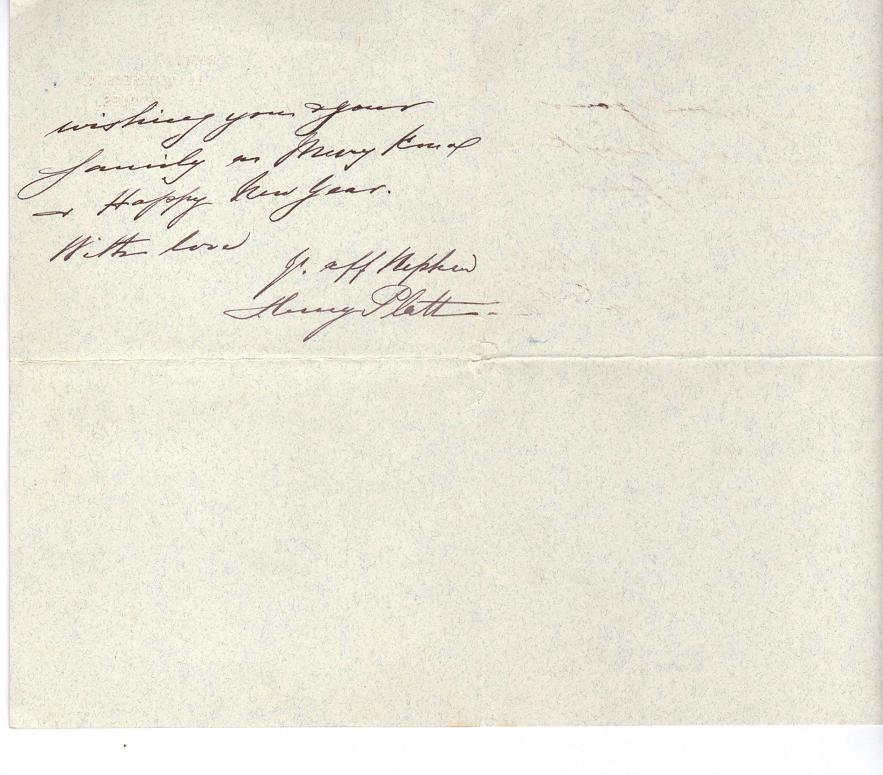 wishing you & your
family a Merry Xmas
& Happy New Year.
With love
Yr. aff Nephew
Henry Platt.